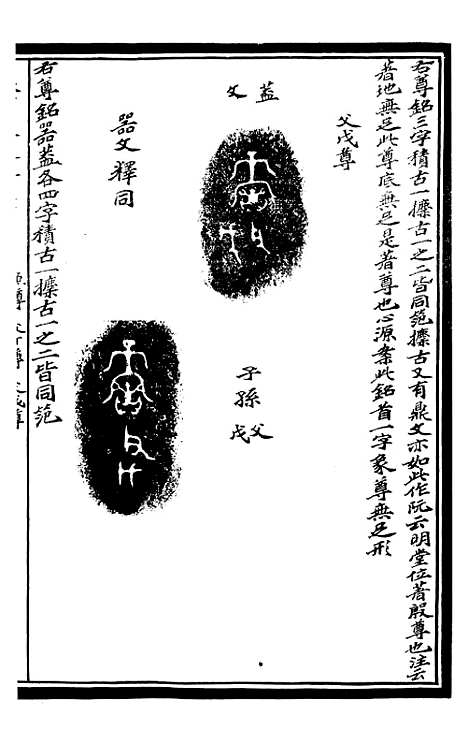 右尊銘三字積古一攈古一之二皆同笵攈古又有鼎文亦如此作阮云明堂位著殷尊也注云
著地無足此尊底無足是著尊也心源案此銘首一字象尊無足形
父戊尊
蓋文
子孫父戊
器文釋同
右尊銘器蓋各四字積古一攈古一之二皆同笵